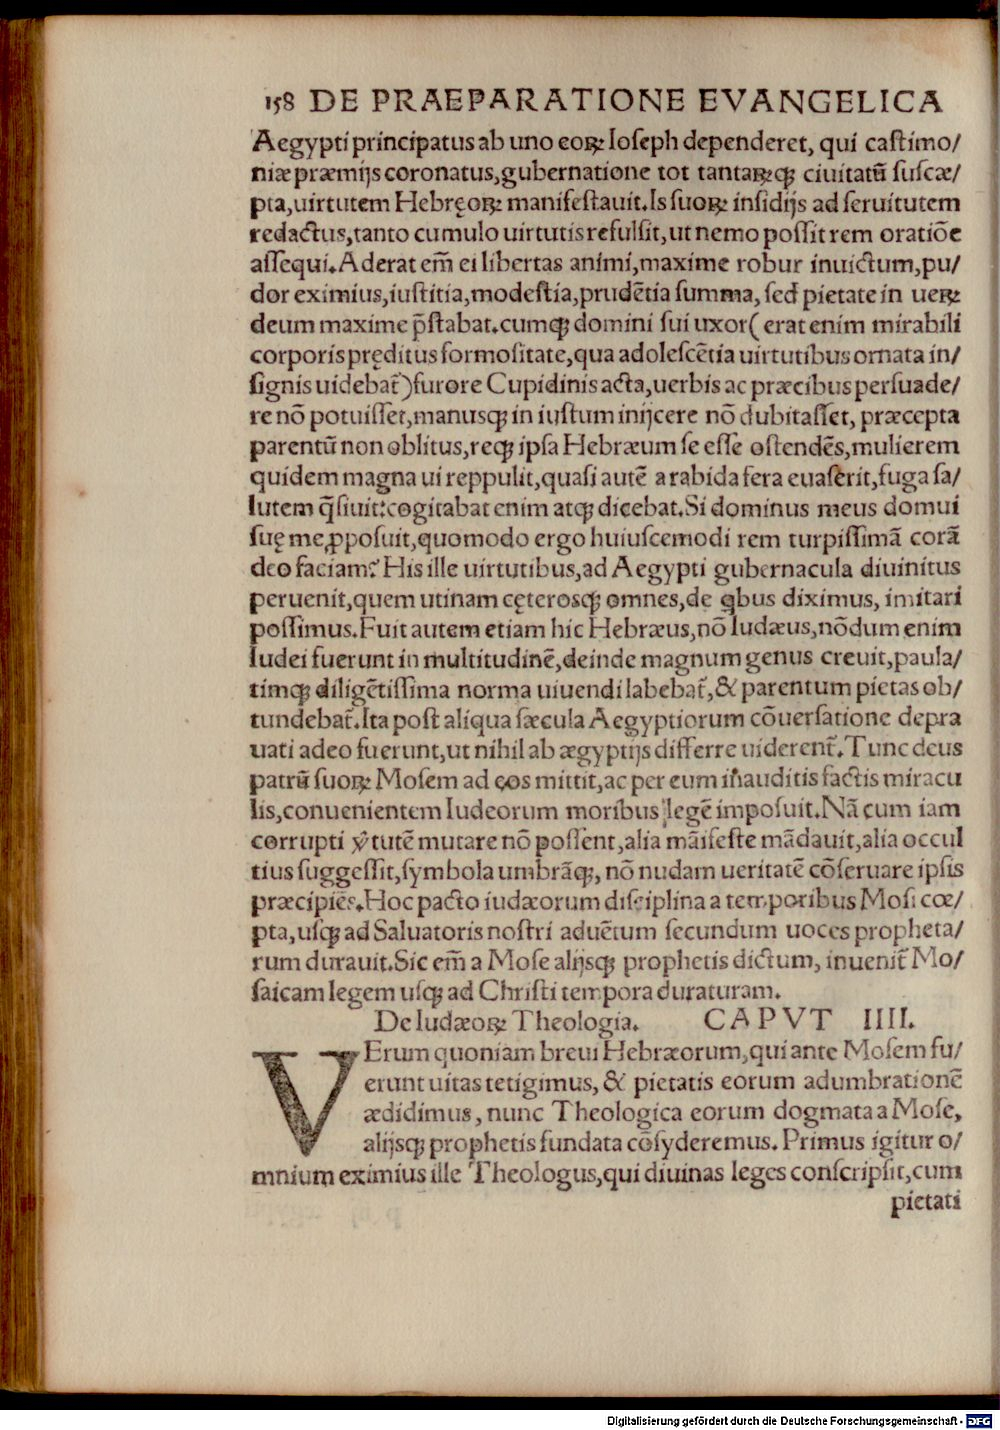 158 DE PRAEPARATIONE EVANGELICA
Aegypti principatus ab uno eoꝝ Ioseph dependeret, qui castimo/
niæ præmijs coronatus, gubernatione tot tantaꝝqꝫ ciuitatũ suscæ/
pta, uirtutem Hebręoꝝ manifestauit. Is suoꝝ insidijs ad seruitutem
redactus, tanto cumulo uirtutis refulsit, ut nemo possit rem oratiõe
assequi. Aderat em̃ ei libertas animi, maxime robur inuictum, pu/
dor eximius, iustitia, modestia, prudẽtia summa, sed pietate in ueꝝ
deum maxime p̃stabat. cumqꝫ domini sui uxor (erat enim mirabili
corporis pręditus formositate, qua adolescẽtia uirtutibus ornata in/
signis uidebat̃) furore Cupidinis acta, uerbis ac præcibus persuade/
re nõ potuisset, manusqꝫ in iustum inijcere nõ dubitasset, præcepta
parentũ non oblitus, reqꝫ ipsa Hebræum se esse ostendẽs, mulierem
quidem magna ui reppulit, quasi autẽ a rabida fera euaserit, fuga sa/
lutem q̃siuit: cogitabat enim atqꝫ dicebat. Si dominus meus domui
suę me ꝓposuit, quomodo ergo huiuscemodi rem turpissimã corã
deo faciam? His ille uirtutibus, ad Aegypti gubernacula diuinitus
peruenit, quem utinam cęterosqꝫ omnes, de qbus diximus, imitari
possimus. Fuit autem etiam hic Hebræus, nõ Iudæus, nõdum enim
Iudei fuerunt in multitudinẽ, deinde magnum genus creuit, paula/
timqꝫ diligẽtissima norma uiuendi labebat̃, & parentum pietas ob/
tundebat̃. Ita post aliqua sæcula Aegyptiorum cõuersatione depra
uati adeo fuerunt, ut nihil ab ægyptijs differre uiderent̃. Tunc deus
patrũ suoꝝ Mosem ad eos mittit, ac per eum inauditis factis miracu
lis, conuenientem Iudeorum moribus legẽ imposuit. Nã cum iam
corrupti v̓tutẽ mutare nõ possent, alia mãifeste mãdauit, alia occul
tius suggessit, symbola umbrãqꝫ, nõ nudam ueritatẽ cõseruare ipsis
præcipiẽs. Hoc pacto iudæorum disciplina a temporibus Mosi cœ/
pta, usqꝫ ad Saluatoris nostri aduẽtum secundum uoces propheta/
rum durauit. Sic em̃ a Mose alijsqꝫ prophetis dictum, inuenit̃ Mo/
saicam legem usqꝫ ad Christi tempora duraturam.
De Iudæoꝝ Theologia. CAPVT IIII.
VErum quoniam breui Hebræorum, qui ante Mosem fu/
erunt uitas tetigimus, & pietatis eorum adumbrationẽ
ædidimus, nunc Theologica eorum dogmata a Mose,
alijsqꝫ prophetis fundata cõsyderemus. Primus igitur o/
mnium eximius ille Theologus, qui diuinas leges conscripsit, cum
pietati
Digitalisierung gefördert durch die Deutsche Forschungsgemeinschaft - DFG